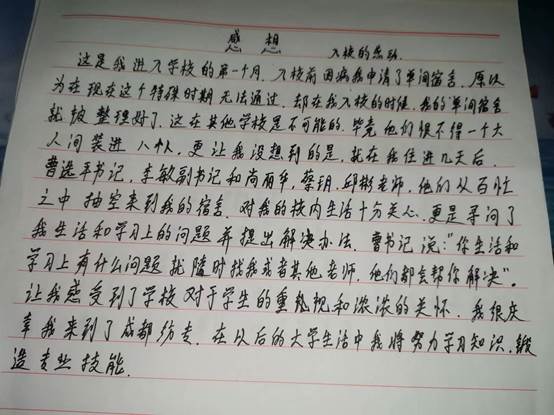 感想
入校的感动
这是我进入学校的第一个月，入校前因病我申请了单间宿舍，原以
为在现在这个特殊时期无法通过，却在我入校的时候，我的单间宿舍
就被整理好了，这在其他学校是不可能的，毕竟他们恨不得一个大
人间装进八个人，更让我没想到的是，就在我住进几天后，
曹选平书记，李敏副书记和尚丽平，蔡玥，邱彬老师，他们从百忙
之中抽空来到我的宿舍，对我的校内生活十分关心，更是寻问了
我生活和学习上的问题并提出解决办法，曹书记说："你生活和
学习上有什么问题就随时找我或者其他老师，他们都会帮你解决"。
让我感受到了学校对于学生的重视和浓浓的关怀，我很庆
幸我来到了成都纺专，在以后的大学生活中我将努力学习知识，锻
造专业技能.